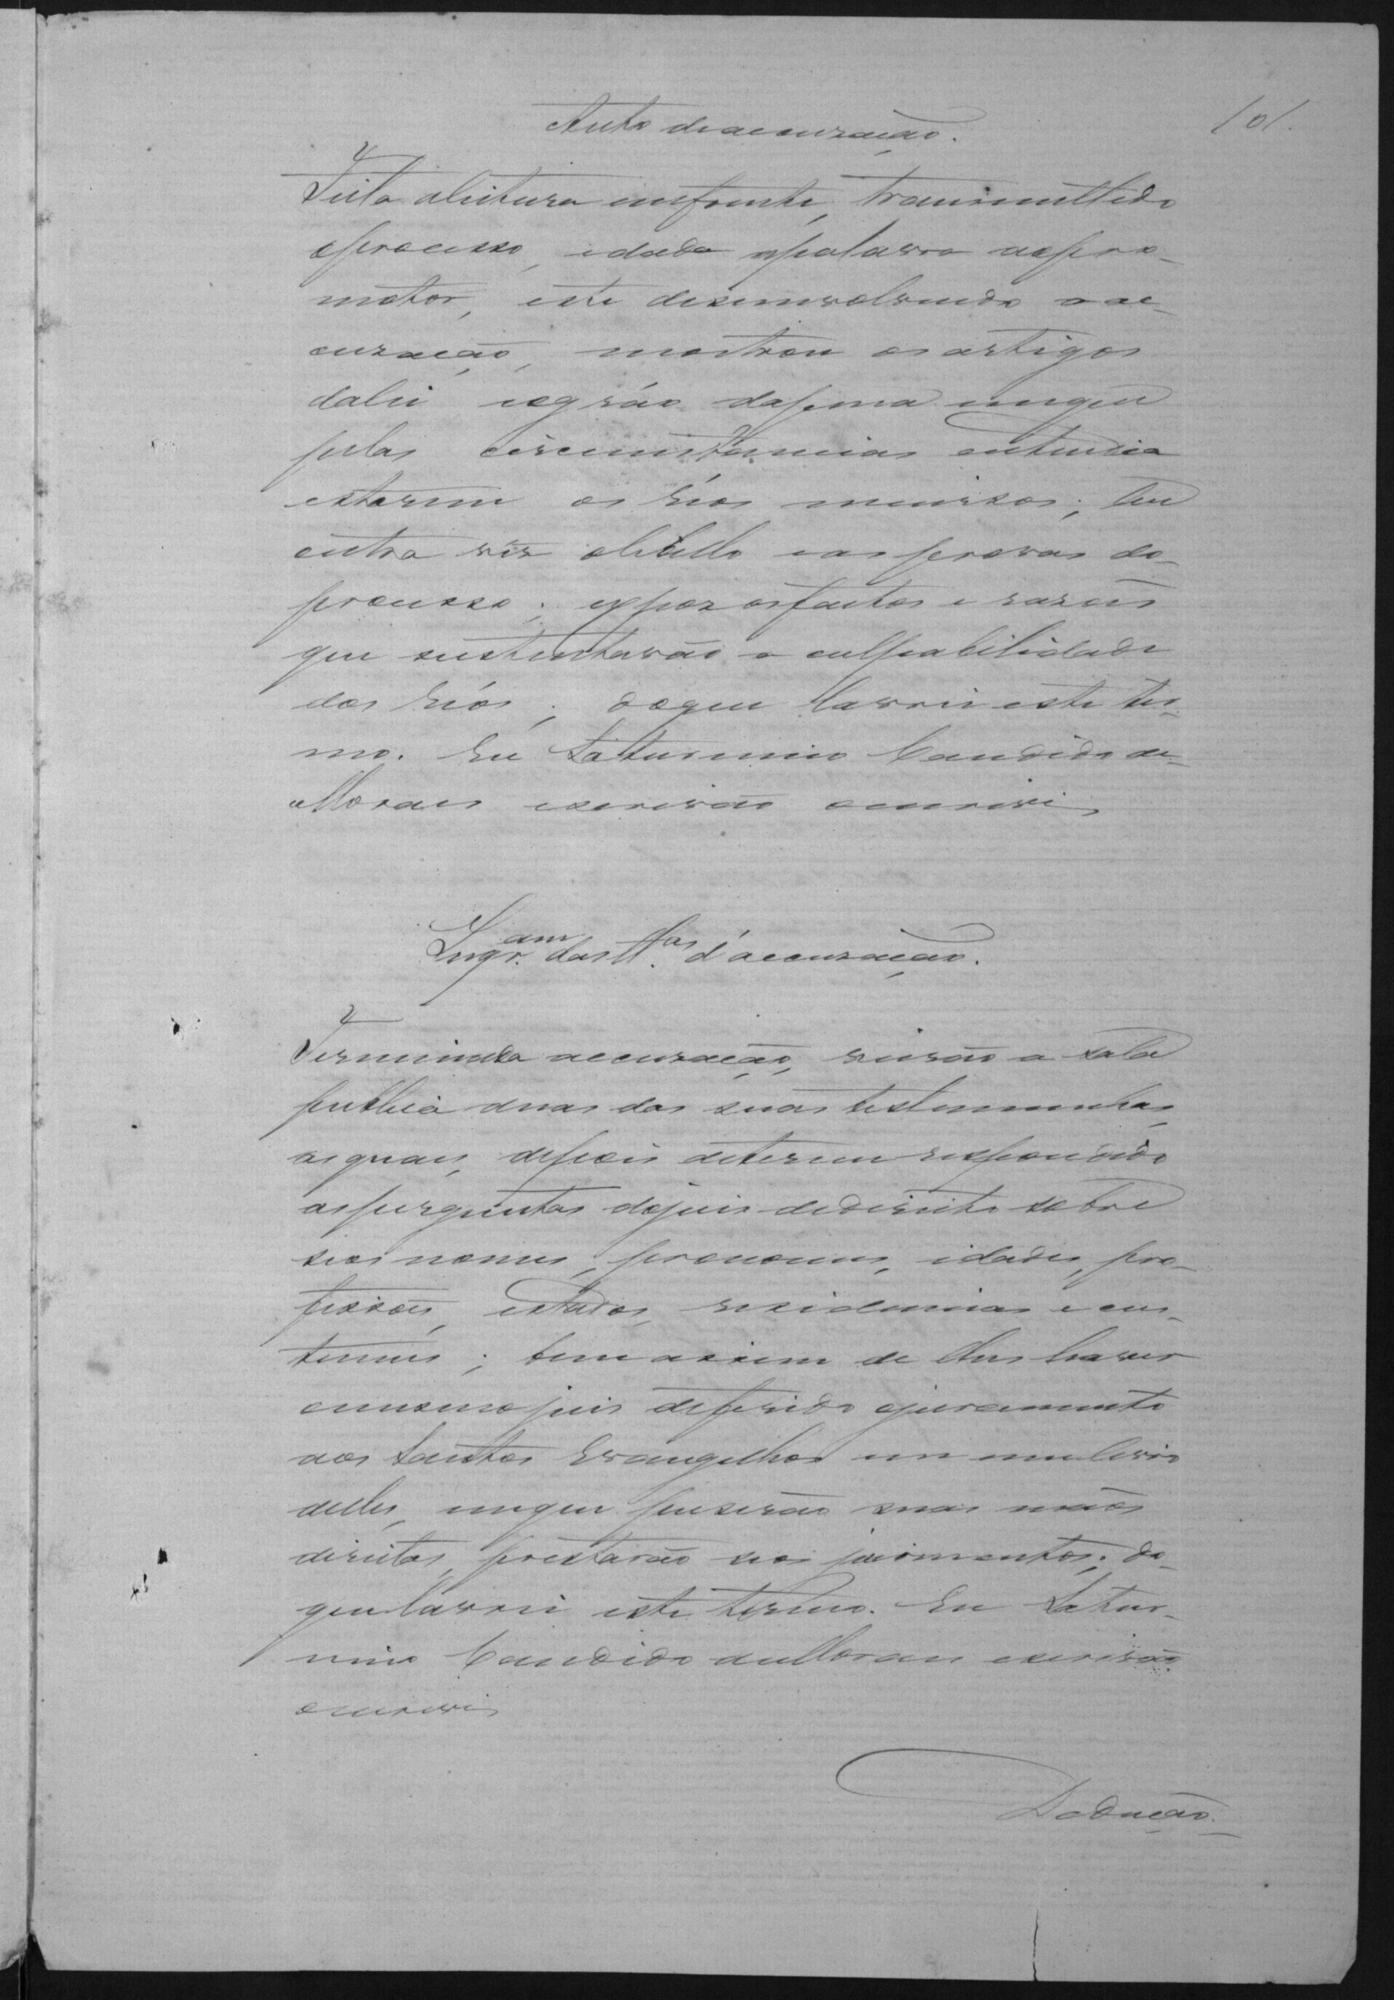 101.
Auto de accuzação.
Feita aleitura emfrente, transmittido
oprocesso, edada apalavra aopro-
motor, este desenvolvendo a ac-
cuzação, mostrou osartigos
dalei egráo dapena emque
pelas circunstancias entendia
estarem os réos incursos; leu
outra vez olibello eas provas do
processo; expoz osfactos e rasões
que sustentavão a culpabilidade
dos réos; doque lavrei este ter-
mo. Eu Saturnino Candido de
Moraes escrivão oescrevi
Inqr.am das tt.as d'accuzação.
Terminada accuzação, vierão a sala
publica duas das suas testemunhas,
as quaes, depois deterem respondido
asperguntas dojuis dedireito sobre
seos nomes, pronomes, idades, pro-
fissões, estados, residencias e cus-
tumes; bem assim de lhes haver
omesmo juis deferido ojuramento
aos Santos Evangelhos em um livro
delles, emque puserão suas mãos
direitas, prestarão seos juramentos; do
quelavrei este termo. Eu Satur-
nino Candido deMoraes escrivão
oescrevi